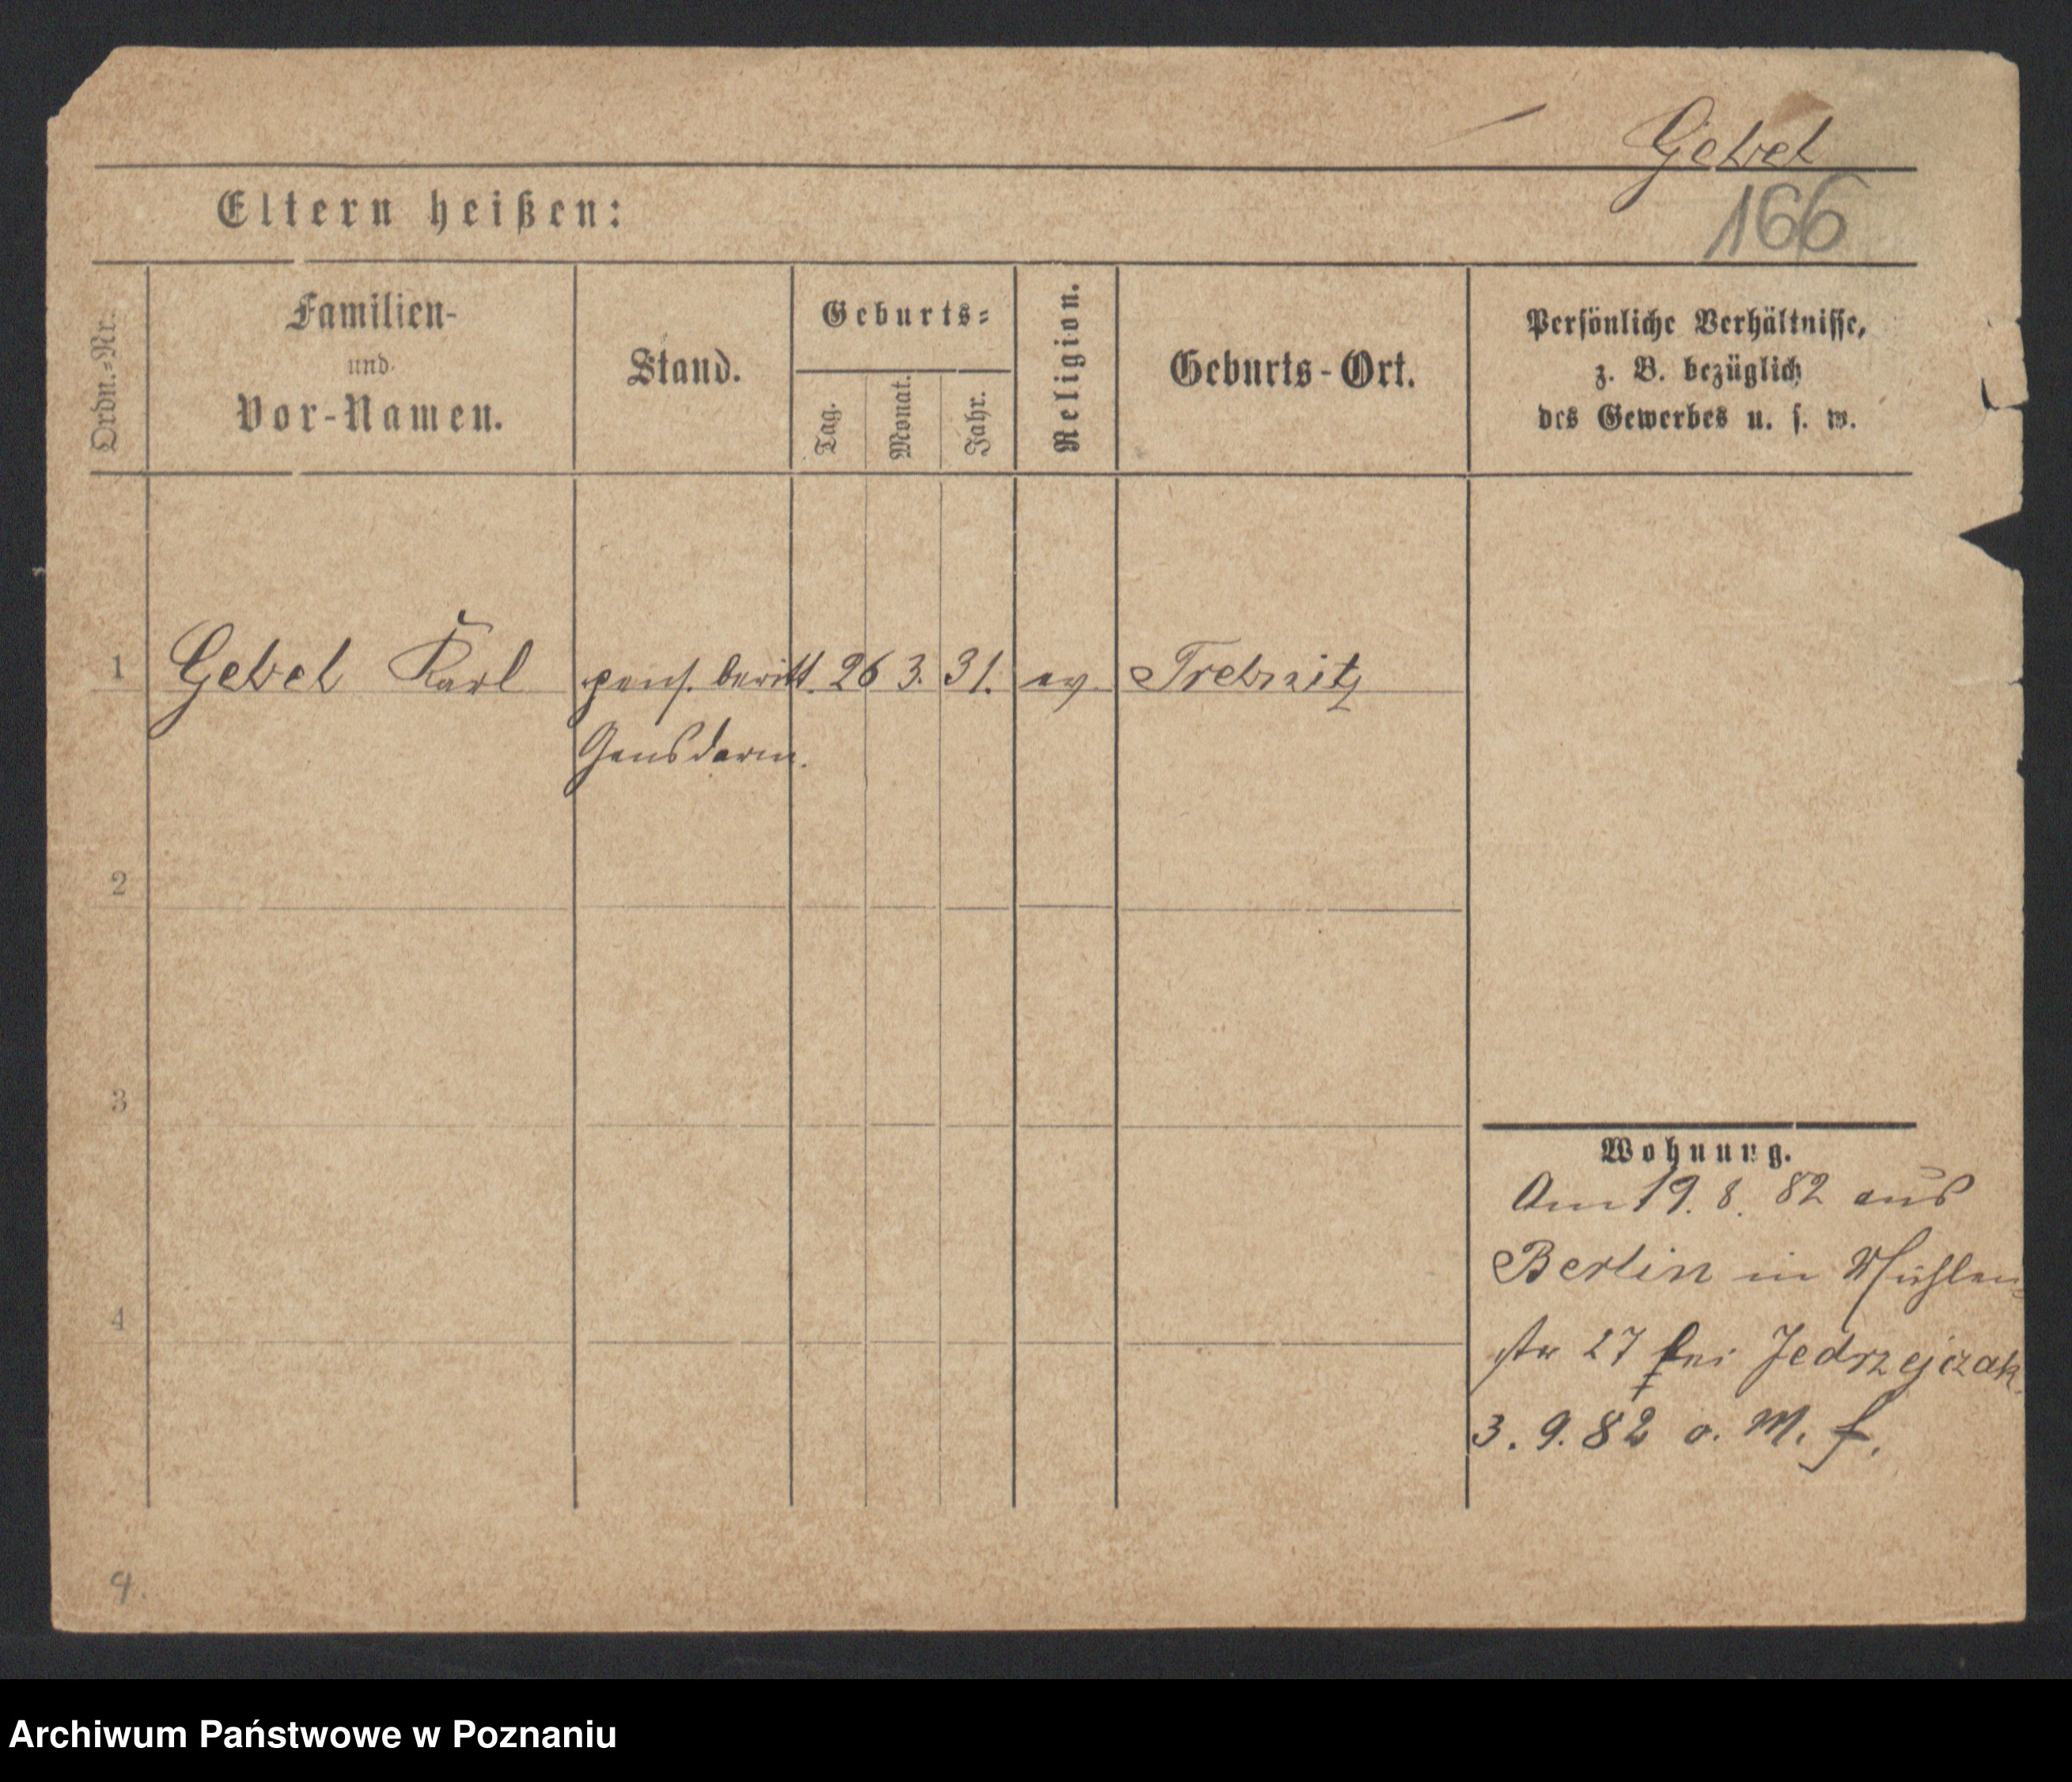 Gebel
166
Eltern heißen:
Ordn.-Nr.
Familien-
und
Vor-Namen.
Stand.
Geburts-
Tag.
Monat.
Jahr.
Religion.
Geburts-Ort.
Persönliche Verhältnisse,
z. B. bezüglich
des Gewerbes u. s. w.
1 Gebel Karl pens. beritt. 26 3. 31. ev. Trebnitz
Gensdarm.
2
3
4
Wohnung.
Am 19. 8. 82 aus
Berlin in Mühlen
str 27 bei Jedrzejczak
3. 9. 82 o. M. f.
9.
Archiwum Państwowe w Poznaniu